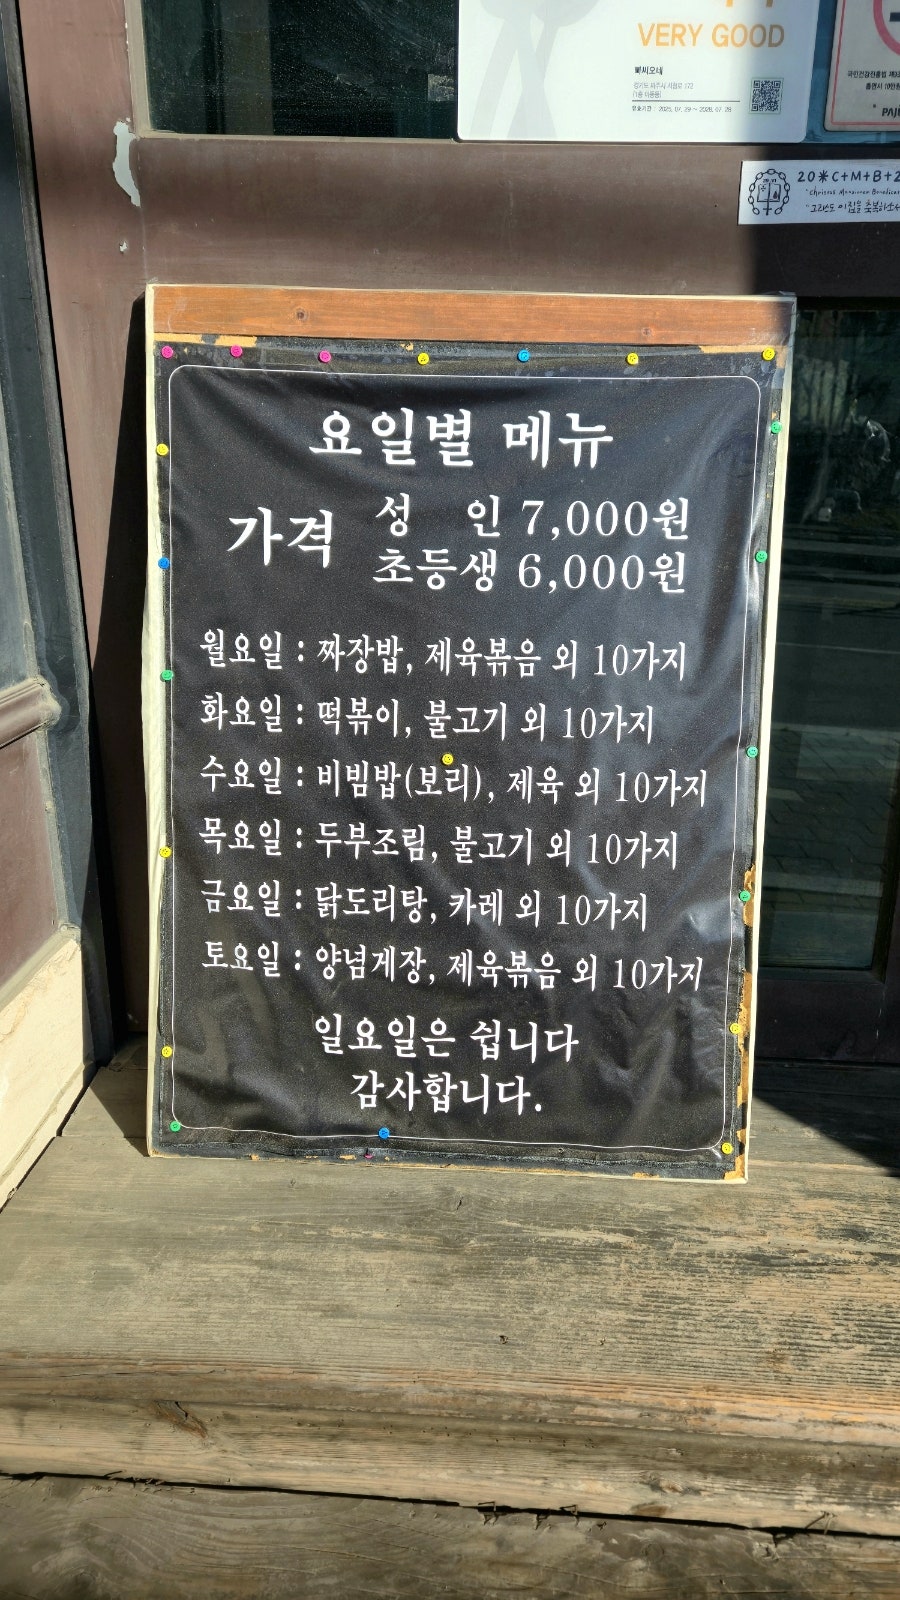 VERY GOOD
빠씨오네
2025. 07. 29 ~ 2028. 07. 28
PAJU
20*C+M+B+2
요일별 메뉴
가격
성 인 7,000원
초등생 6,000원
월요일 : 짜장밥, 제육볶음 외 10가지
화요일 : 떡볶이, 불고기 외 10가지
수요일 : 비빔밥(보리), 제육 외 10가지
목요일 : 두부조림, 불고기 외 10가지
금요일 : 닭도리탕, 카레 외 10가지
토요일 : 양념게장, 제육볶음 외 10가지
일요일은 쉽니다
감사합니다.